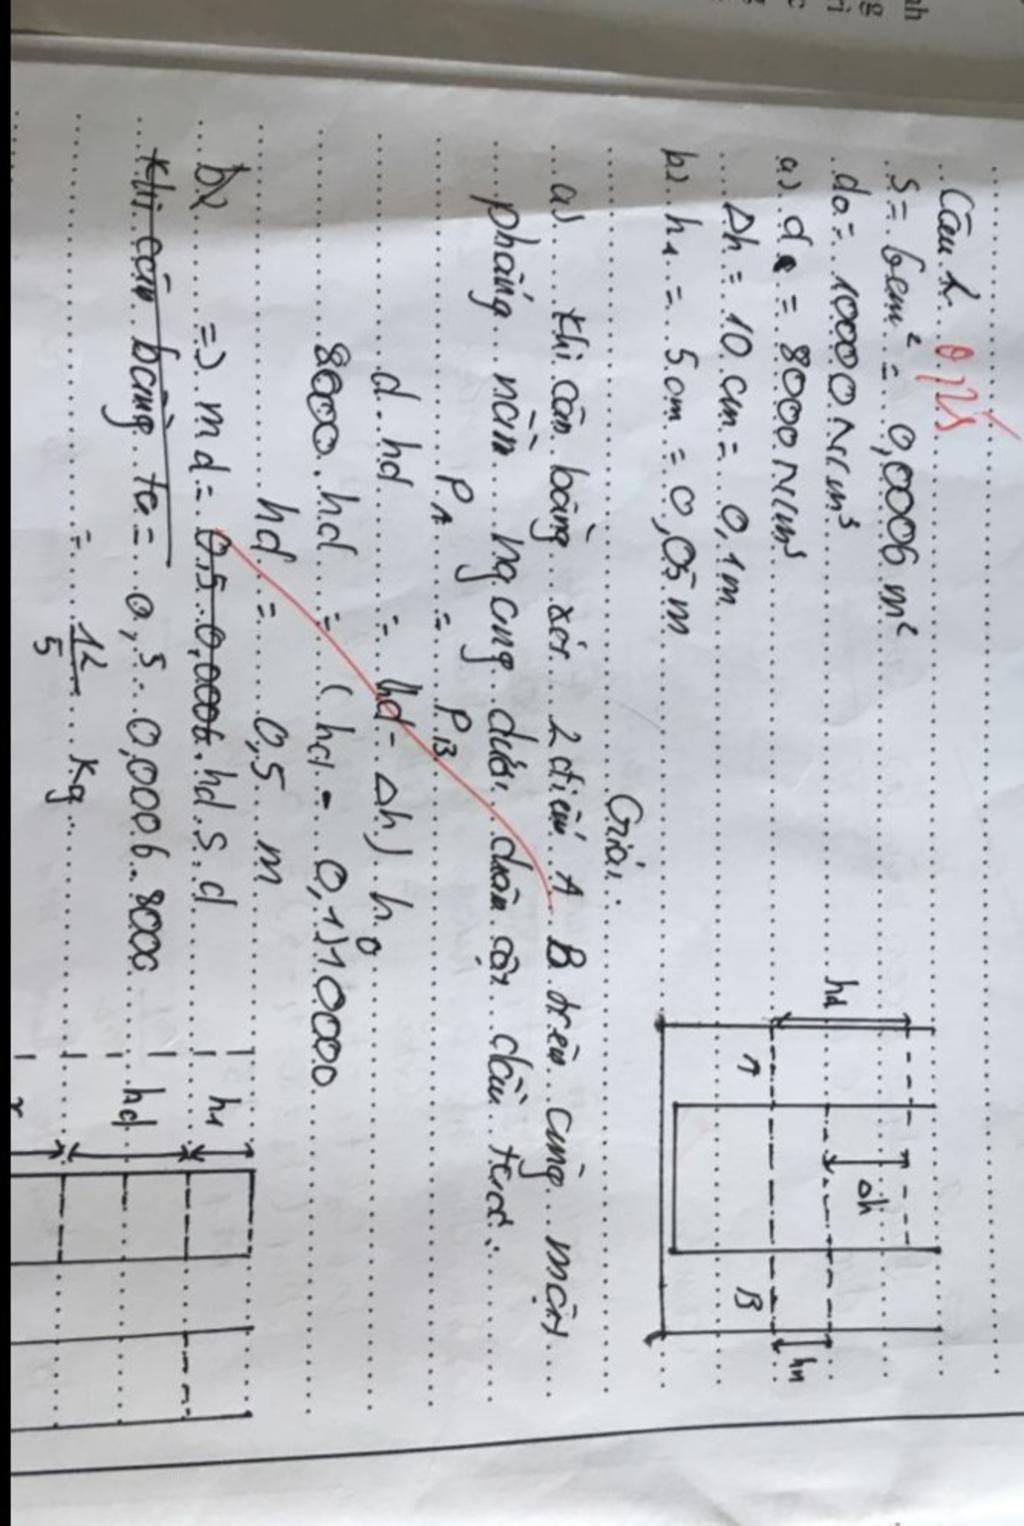 Câu 2 0,125
S = 6cm² = 0,0006 m²
d₀ = 10000 N/m³
a) d = 8000 N/m³
Δh = 10 cm = 0,1m
b) h₁ = 5cm = 0,05 m
hd
Δh
A
B
hn
Giải:
a) Khi cân bằng xét 2 điểm A B trên cùng một
phẳng nằm ng cùng dưới chân cột dầu
P_A = P_B
d . hd = hd - Δh) h₀
8000 . hd = (hd - 0,1)10000
hd = 0,5 m
b) => md = 0,5 . 0,0006 . hd . S . d
Khi cân bằng ta = 0,5 . 0,0006 . 8000
= 12/5 kg
h₁
hd